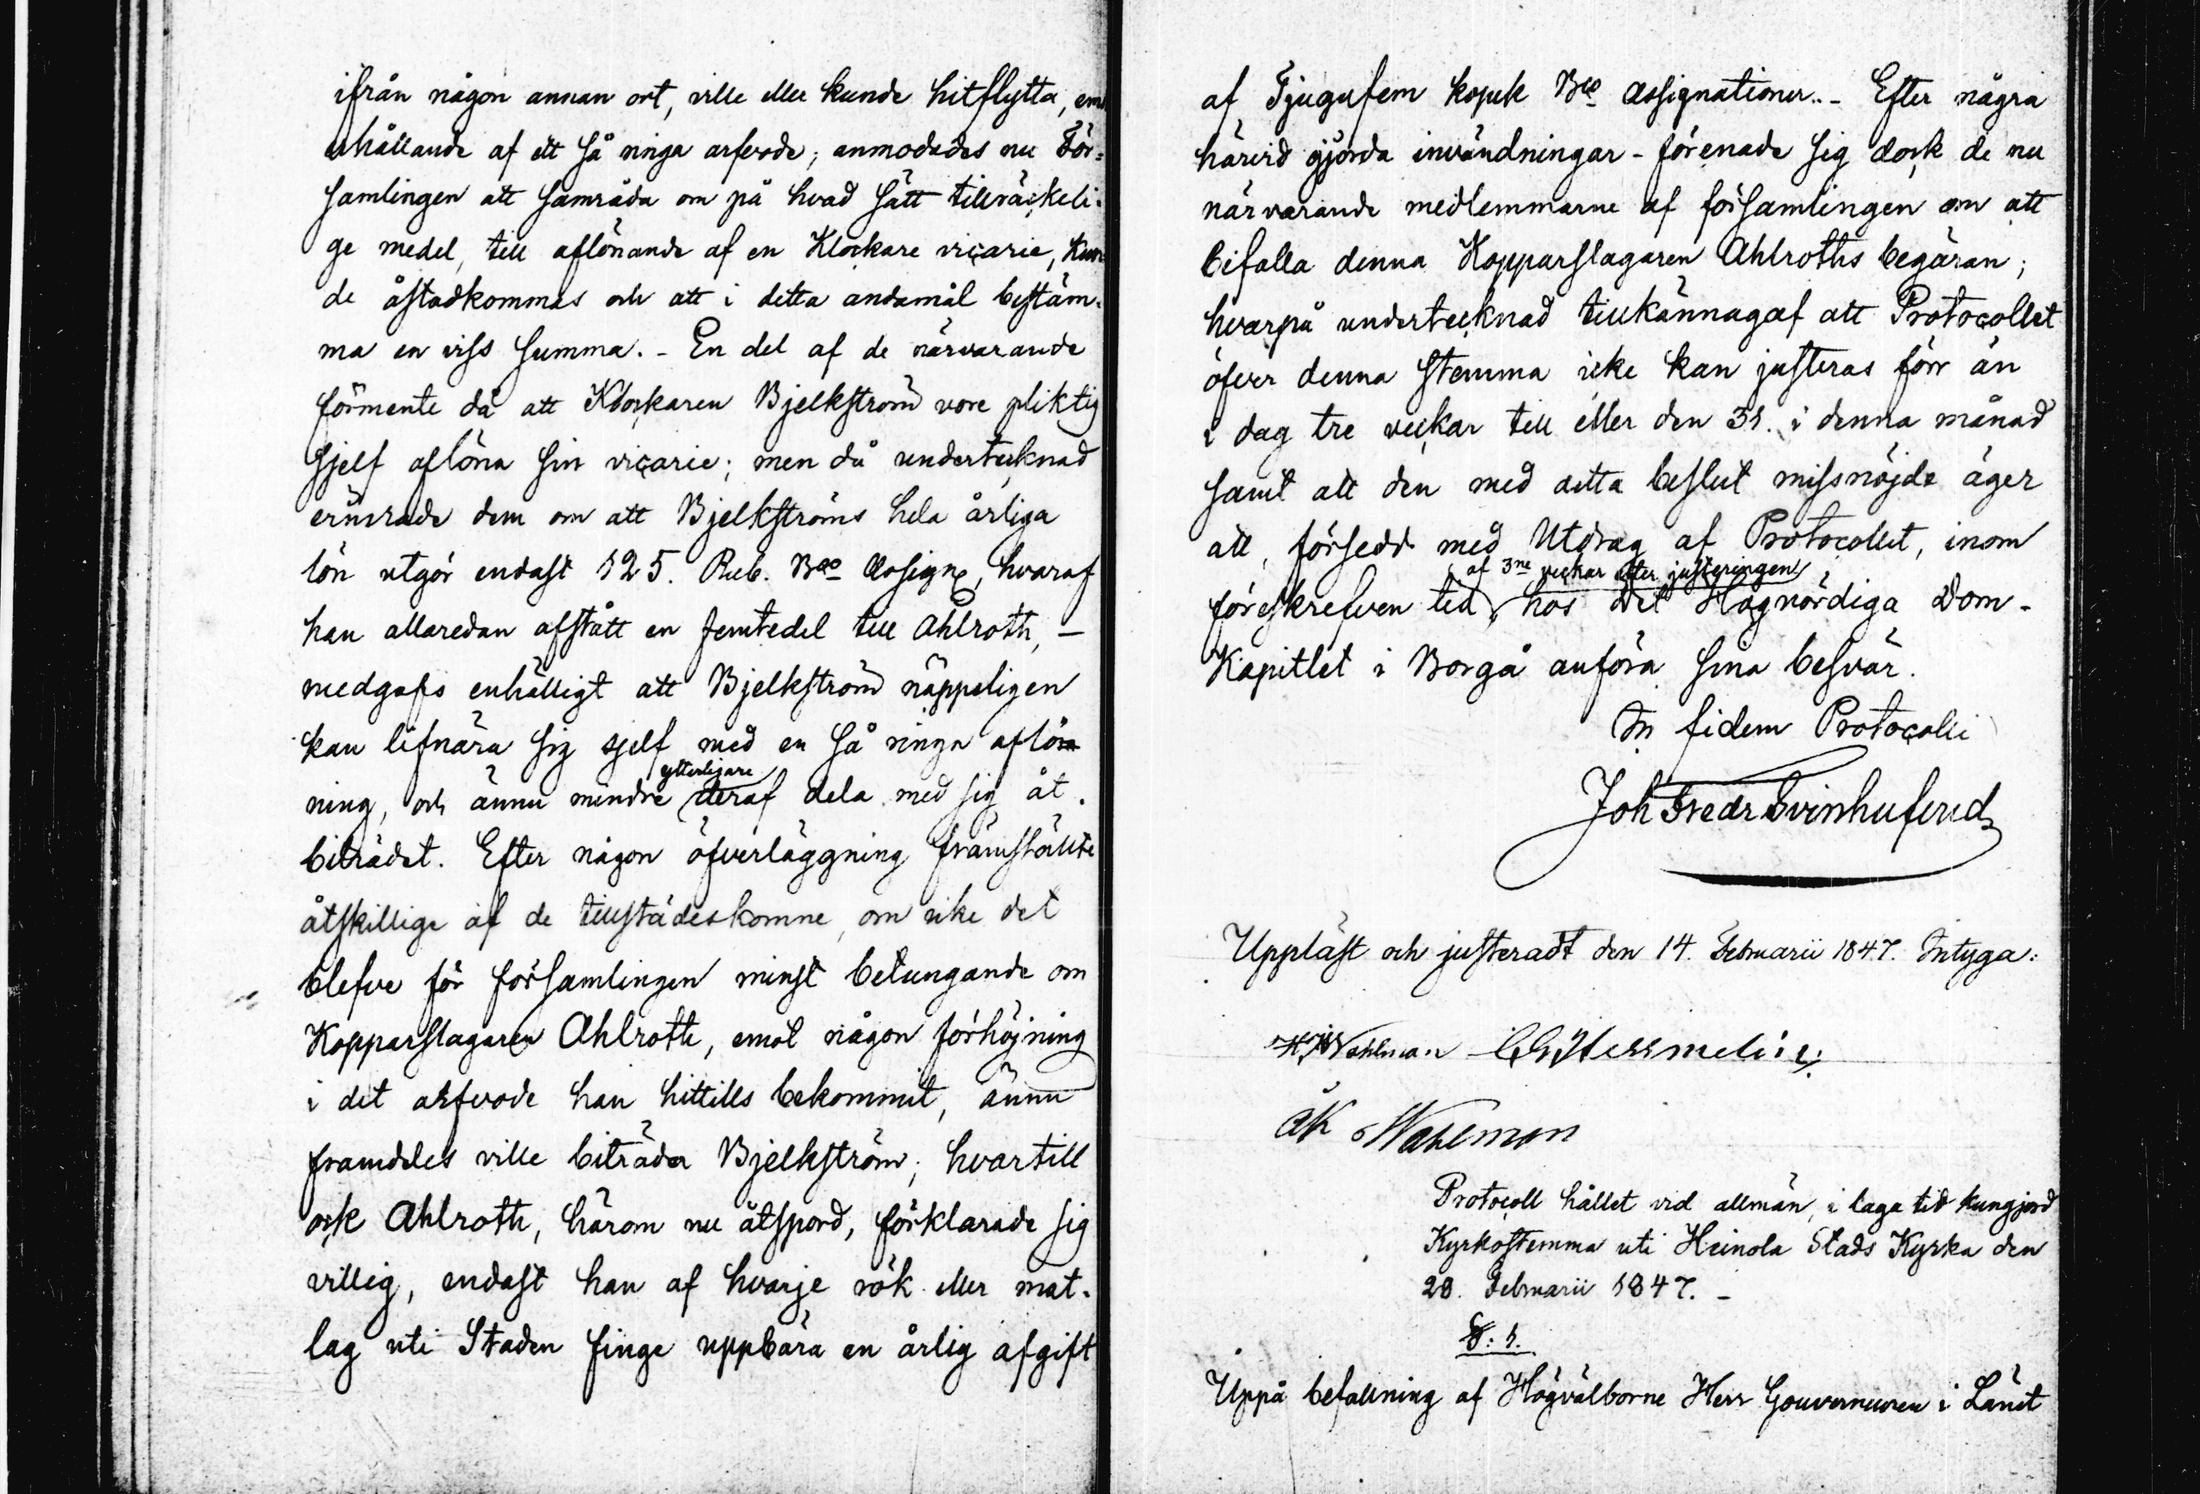 ifrån någon annan ort, ville eller kunde hitflytta, emot
erhållande af ett så ringa arfvode; anmodades nu För-
samlingen att samråda om på hvad sätt tillräckeli-
ge medel, till aflönande af en Klockare vicarie, kun-
de åstadkommas och att i detta andamål bestäm-
ma en viss summa. - En del af de närvarande
förmente då att Klockaren Bjelkström vore pliktig
sjelf aflöna sin vicarie; men då undertecknad
erinrade dem om att Bjelkströms hela årliga
lön utgör endast 125. Rub. Bco Assigne, hvaraf
han allaredan afstått en femtedel till Ahlroth, -
medgafs enhälligt att Bjelkström näppeligen
kan lifnära sig sjelf med en så ringa aflö
ning, och ännu mindre ytterligare deraf dela med sig åt
biträdet. Efter någon öfverläggning framställte
åtskillige af de tillstädeskomne, om icke det
blefve för församlingen minst betungande om
Kopparslagaren Ahlroth, emot någon förhöjning
i det arfvode han hittills bekommit, ännu
framdeles ville biträda Bjelkström; hvartill
ock Ahlroth, härom nu åtspord, förklarade sig
villig, endast han af hvarje rök eller mat-
lag uti Staden finge uppbära en årlig afgift
af Tjugufem kopek Bco Assignationer. - Efter några
härvid gjorda invändningar - förenade sig dock de nu
närvarande medlemmarne af församlingen om att
bifalla denna Kopparslagaren Ahlroths begäran;
hvarpå undertecknad tillkännagaf att Protocollet
öfver denna stemma icke kan justeras förr än
i dag tre veckar till eller den 31. i denna månad
samt att den med detta beslut missnöjde äger
att, försedd med Utdrag af Protocollet, inom
föreskrefven tid af 3ne veckar efter justeringen, hos Det Högvördiga Dom-
Kapitlet i Borgå anföra sina besvär.
In fidem Protocolli
Joh Fredr Svinhufvud
Uppläst och justeradt den 14. Februarii 1847. Intyga:
Wahlman
AK Wahlman
Protocoll hållet vid allmän, i laga tid kungjord
Kyrkostemma uti Heinola Stads Kyrka den
28. Februarii 1847. -
§. 1.
Uppå befallning af Högvälborne Herr Gouverneuren i Länet